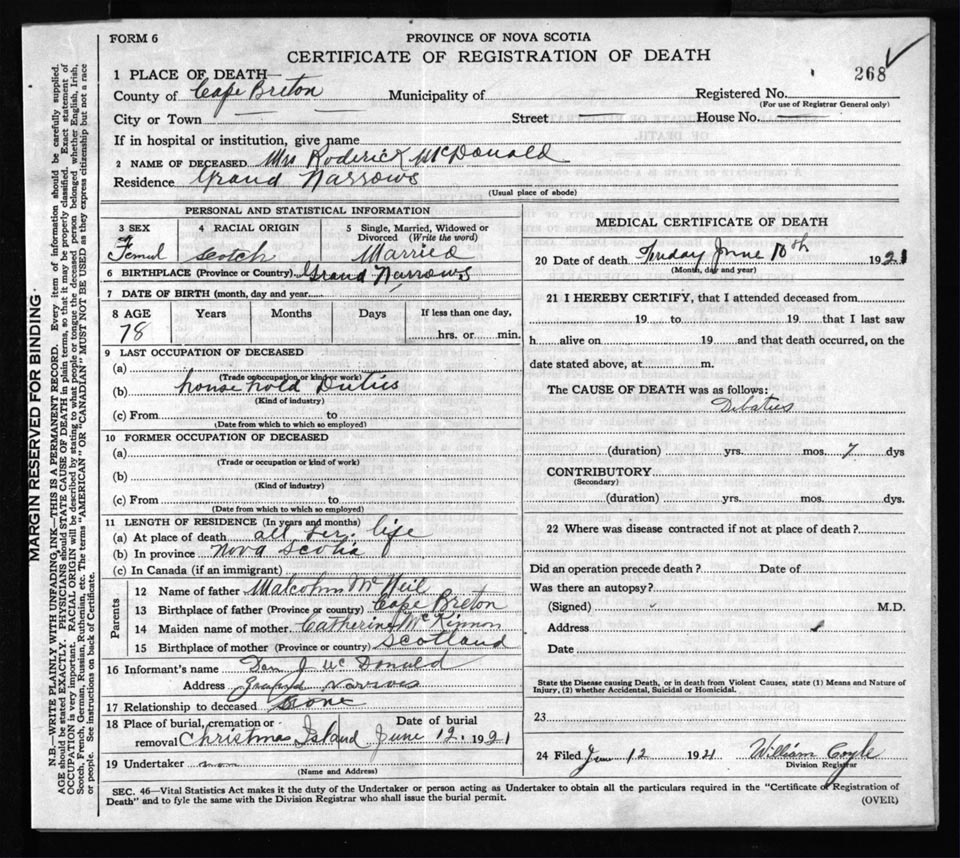 FORM 6
PROVINCE OF NOVA SCOTIA
CERTIFICATE OF REGISTRATION OF DEATH
268
1 PLACE OF DEATH—
County of Cape Breton Municipality of Registered No.
(For use of Registrar General only)
City or Town Street House No.
If in hospital or institution, give name
2 NAME OF DECEASED Mrs Roderick McDonald
Residence Grand Narrows
(Usual place of abode)
PERSONAL AND STATISTICAL INFORMATION
3 SEX 4 RACIAL ORIGIN 5 Single, Married, Widowed or
Divorced (Write the word)
Femul Scotch Married
6 BIRTHPLACE (Province or Country) Grand Narrows
7 DATE OF BIRTH (month, day and year)
8 AGE Years Months Days If less than one day,
78 hrs. or min.
9 LAST OCCUPATION OF DECEASED
(a)
(Trade or occupation or kind of work)
(b) house hold Duties
(Kind of industry)
(c) From to
(Date from which to which so employed)
10 FORMER OCCUPATION OF DECEASED
(a)
(Trade or occupation or kind of work)
(b)
(Kind of industry)
(c) From to
(Date from which to which so employed)
11 LENGTH OF RESIDENCE (In years and months)
(a) At place of death all her life
(b) In province Nova Scotia
(c) In Canada (if an immigrant)
Parents
12 Name of father Malcohm McNeil
13 Birthplace of father (Province or country) Cape Breton
14 Maiden name of mother Catherine McKinnon
15 Birthplace of mother (Province or country) Scotland
16 Informant's name Dan J McDonald
Address Grand Narrows
17 Relationship to deceased
18 Place of burial, cremation or Date of burial
removal Christmas Island June 12. 1921
19 Undertaker
(Name and Address)
MEDICAL CERTIFICATE OF DEATH
20 Date of death Friday June 10th 1921
(Month, day and year)
21 I HEREBY CERTIFY, that I attended deceased from
19 to 19 that I last saw
h alive on 19 and that death occurred, on the
date stated above, at m.
The CAUSE OF DEATH was as follows:
Dibatus
(duration) yrs. mos. 7 dys
CONTRIBUTORY
(Secondary)
(duration) yrs. mos. dys.
22 Where was disease contracted if not at place of death?
Did an operation precede death? Date of
Was there an autopsy?
(Signed) M.D.
Address
Date
State the Disease causing Death, or in death from Violent Causes, state (1) Means and Nature of
Injury, (2) whether Accidental, Suicidal or Homicidal.
23
24 Filed June 12 1921 William Coyle
Division Registrar
SEC. 46—Vital Statistics Act makes it the duty of the Undertaker or person acting as Undertaker to obtain all the particulars required in the "Certificate of Registration of
Death" and to fyle the same with the Division Registrar who shall issue the burial permit.
(OVER)
MARGIN RESERVED FOR BINDING
N.B.—WRITE PLAINLY WITH UNFADING INK—THIS IS A PERMANENT RECORD. Every item of information should be carefully supplied.
AGE should be stated EXACTLY. PHYSICIANS should STATE CAUSE OF DEATH in plain terms, so that it may be properly classified. Exact statement of
OCCUPATION is very important. RACIAL ORIGIN will be described by stating to what people or tongue the deceased person belonged whether English, Irish,
Scotch, French, German, Russian, Ruthenian, etc. The terms "AMERICAN" OR "CANADIAN" MUST NOT BE USED as they express citizenship but not a race
or people. See instructions on back of Certificate.